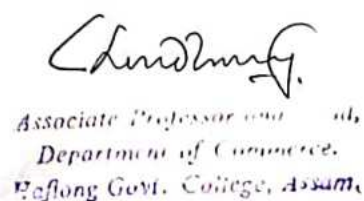 Choudhury.
Associate Professor and
Department of Commerce.
Haflong Govt. College, Assam.